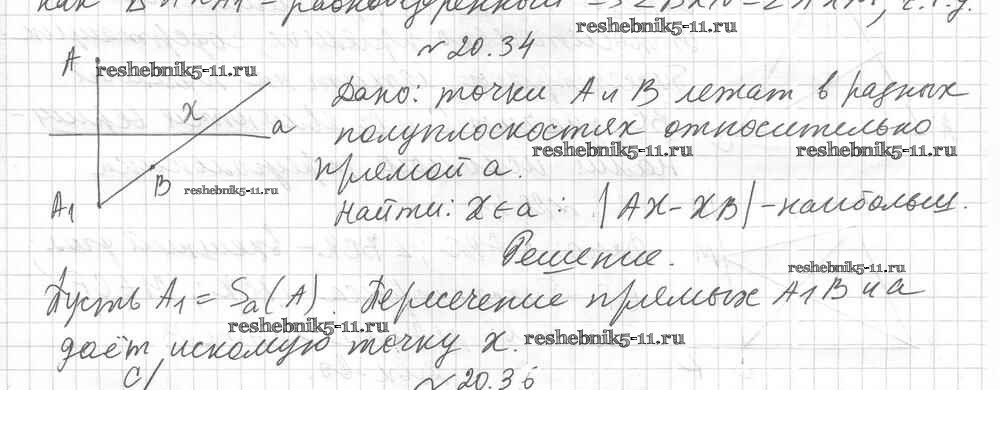 как Δ
reshebnik5-11.ru
№ 20.34
A
reshebnik5-11.ru
Дано: точки A и B лежат в разных
X
a
полуплоскостях относительно
reshebnik5-11.ru
reshebnik5-11.ru
прямой a.
B
reshebnik5-11.ru
A1
Найти: X ∈ a : |AX - XB| - наибольш.
Решение.
reshebnik5-11.ru
Пусть A1 = Sa(A). Пересечение прямых A1B и a
reshebnik5-11.ru
даёт искомую точку X.
reshebnik5-11.ru
№ 20.36